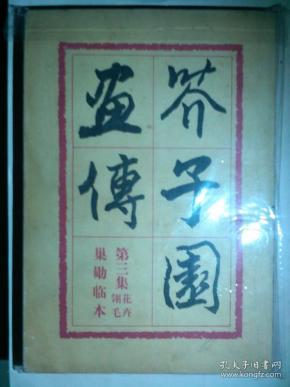 芥子園
畫傳
第三集
花卉
翎毛
巢勛临本
孔夫子旧书网